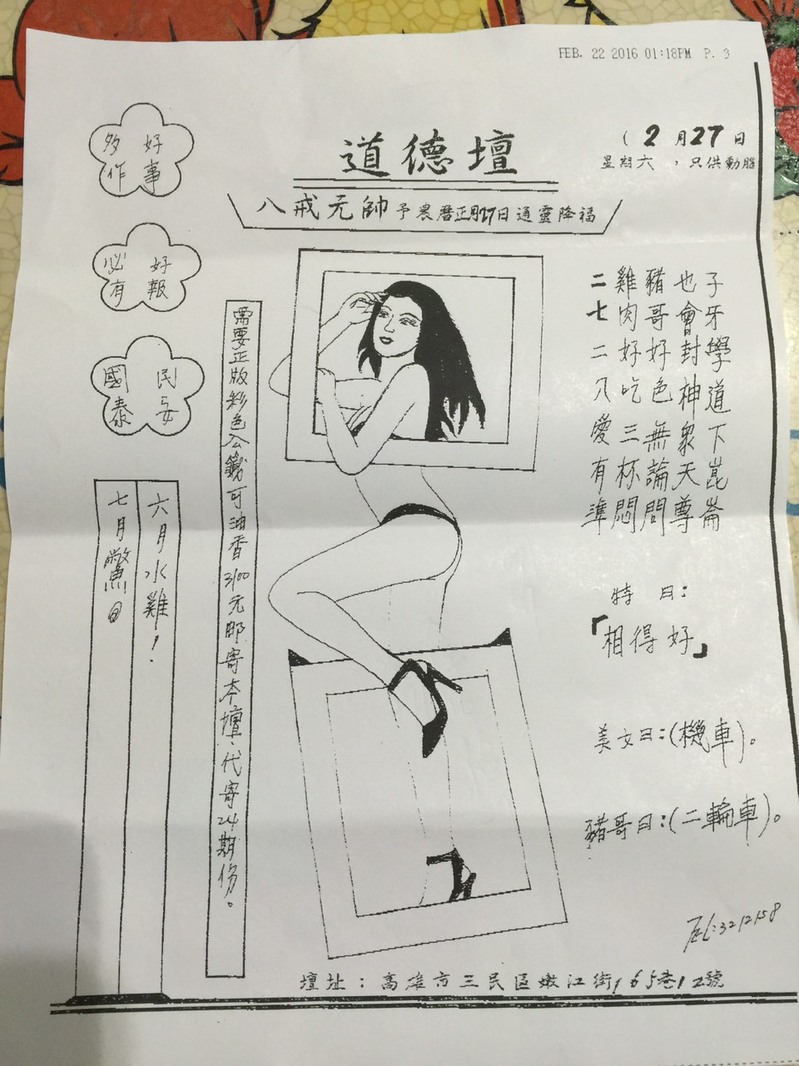 FEB. 22 2016 01:18PM P. 3
(2月27日
星期六，只供動腦
道德壇
八戒元帥予農曆正月27日通靈降福
子牙學道下崑崙
也會封神衆天尊
豬哥好色無論問
雞肉好吃三杯悶
二七二八愛有準
特曰：
「相得好」
美女曰：(機車)。
豬哥曰：(二輪車)。
TEL:3212158
多作好事
必有好報
國泰民安
需要正版彩色可油香3100元郵寄本壇、代寄24期份。
六月水雞！
七月驚@
壇址：高雄市三民區嫩江街165巷12號